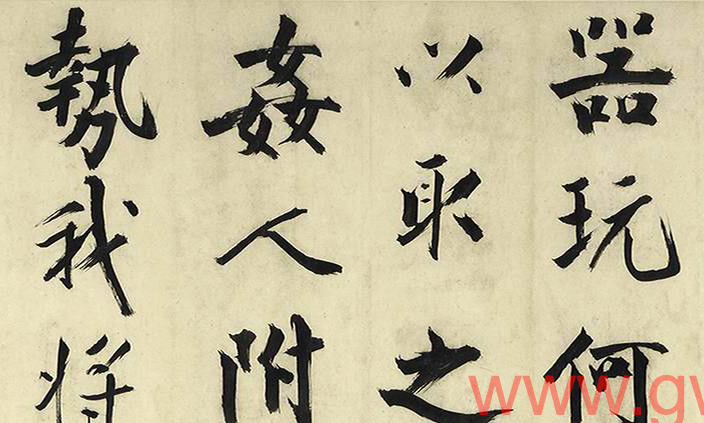 器玩何
以取之
姦人附
勢我将
www.gw